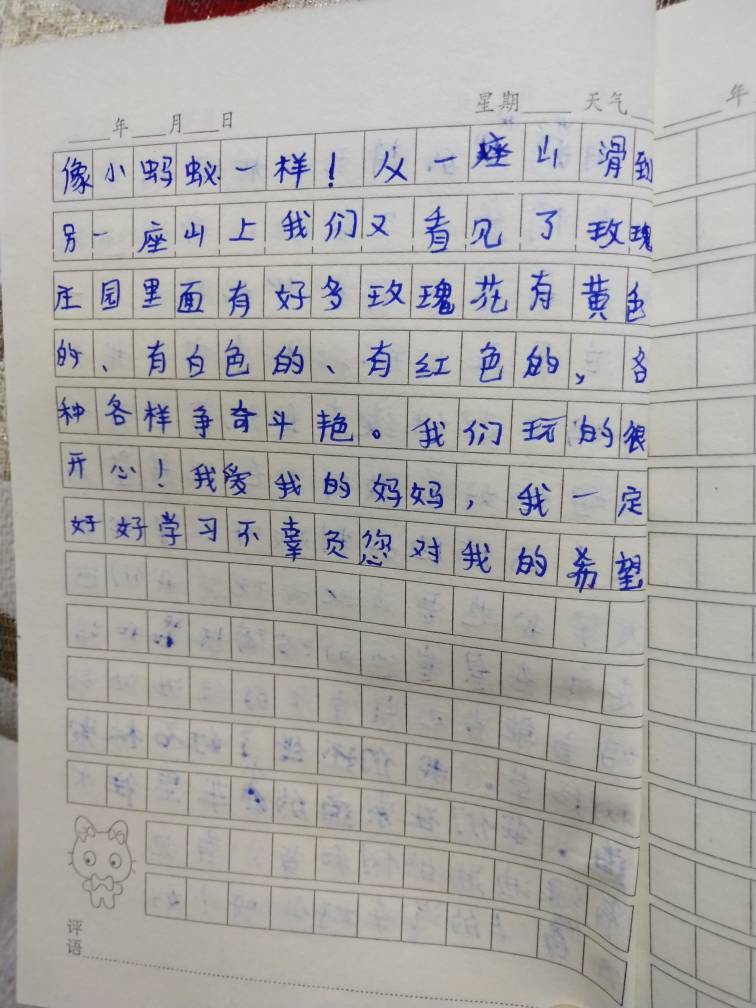 年 月 日 星期 天气
年
像小蚂蚁一样！从一座山滑到
另一座山上我们又看见了玫瑰
庄园里面有好多玫瑰花有黄色
的、有白色的、有红色的，各
种各样争奇斗艳。我们玩的很
开心！我爱我的妈妈，我一定
好好学习不辜负您对我的希望
评语